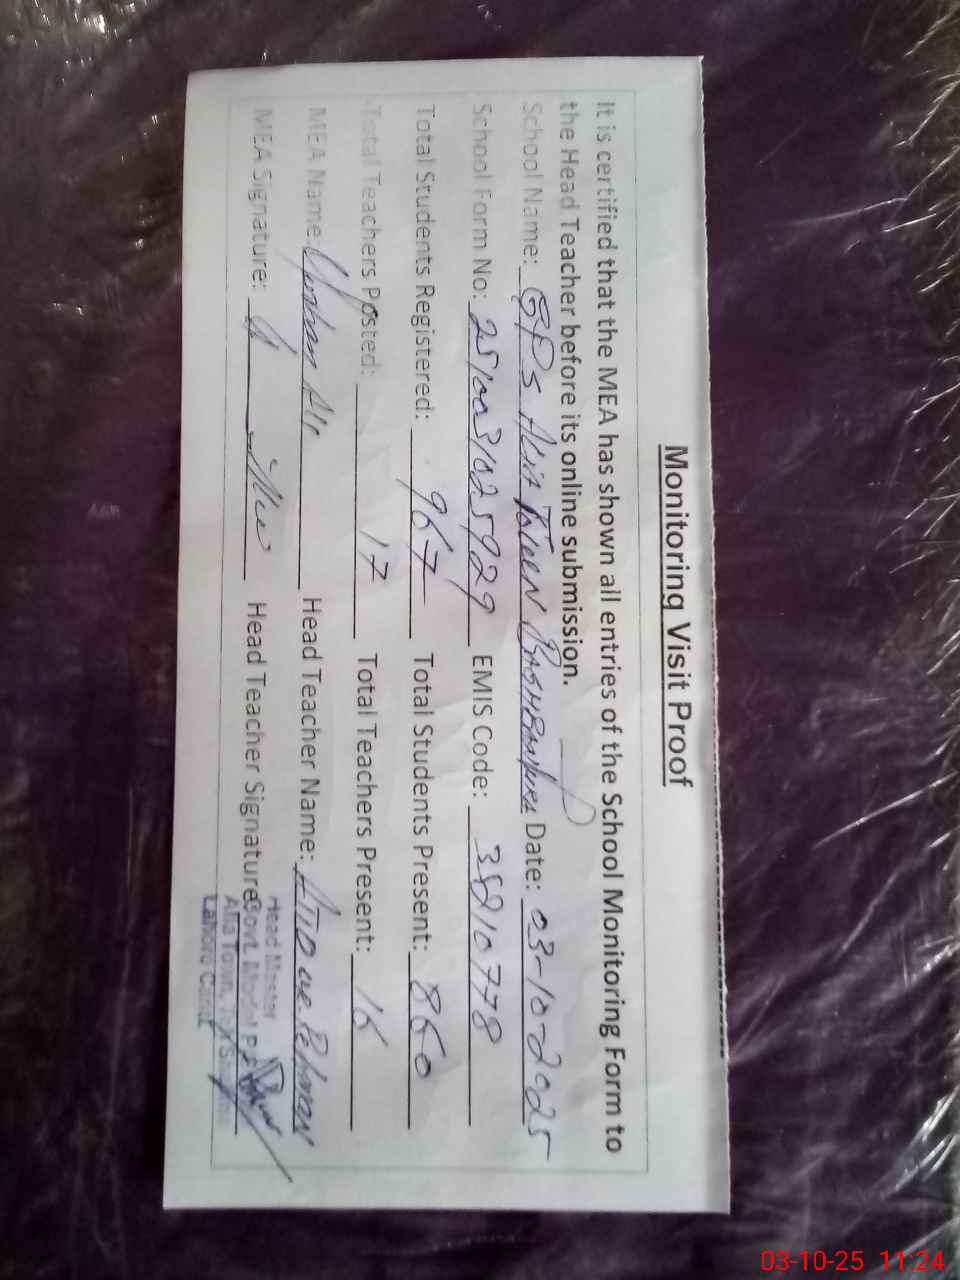 Monitoring Visit Proof
It is certified that the MEA has shown all entries of the School Monitoring Form to
the Head Teacher before its online submission.
School Name: GPS Date: 03-10-2025
School Form No: 2510031025929 EMIS Code: 35210778
Total Students Registered: 967 Total Students Present: 860
Total Teachers Posted: 17 Total Teachers Present: 16
MEA Name: Ali Head Teacher Name: Rehman
MEA Signature: Head Teacher Signature:
Head Master
Govt. Model P.S
Alia Town,
Lahore Cantt
03-10-25 11:24